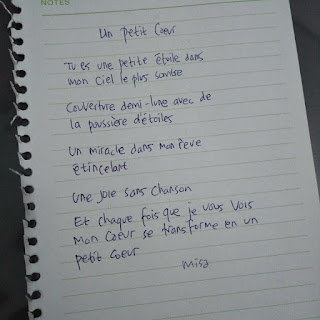 NOTES
Un petit Coeur
Tu es une petite étoile dans
mon ciel le plus sombre
Couverture demi-lune avec de
la poussière d'étoiles
Un miracle dans mon rêve
étincelant
Une joie sans chanson
Et chaque fois que je vous vois
Mon Coeur se transforme en un
petit Coeur
Misa